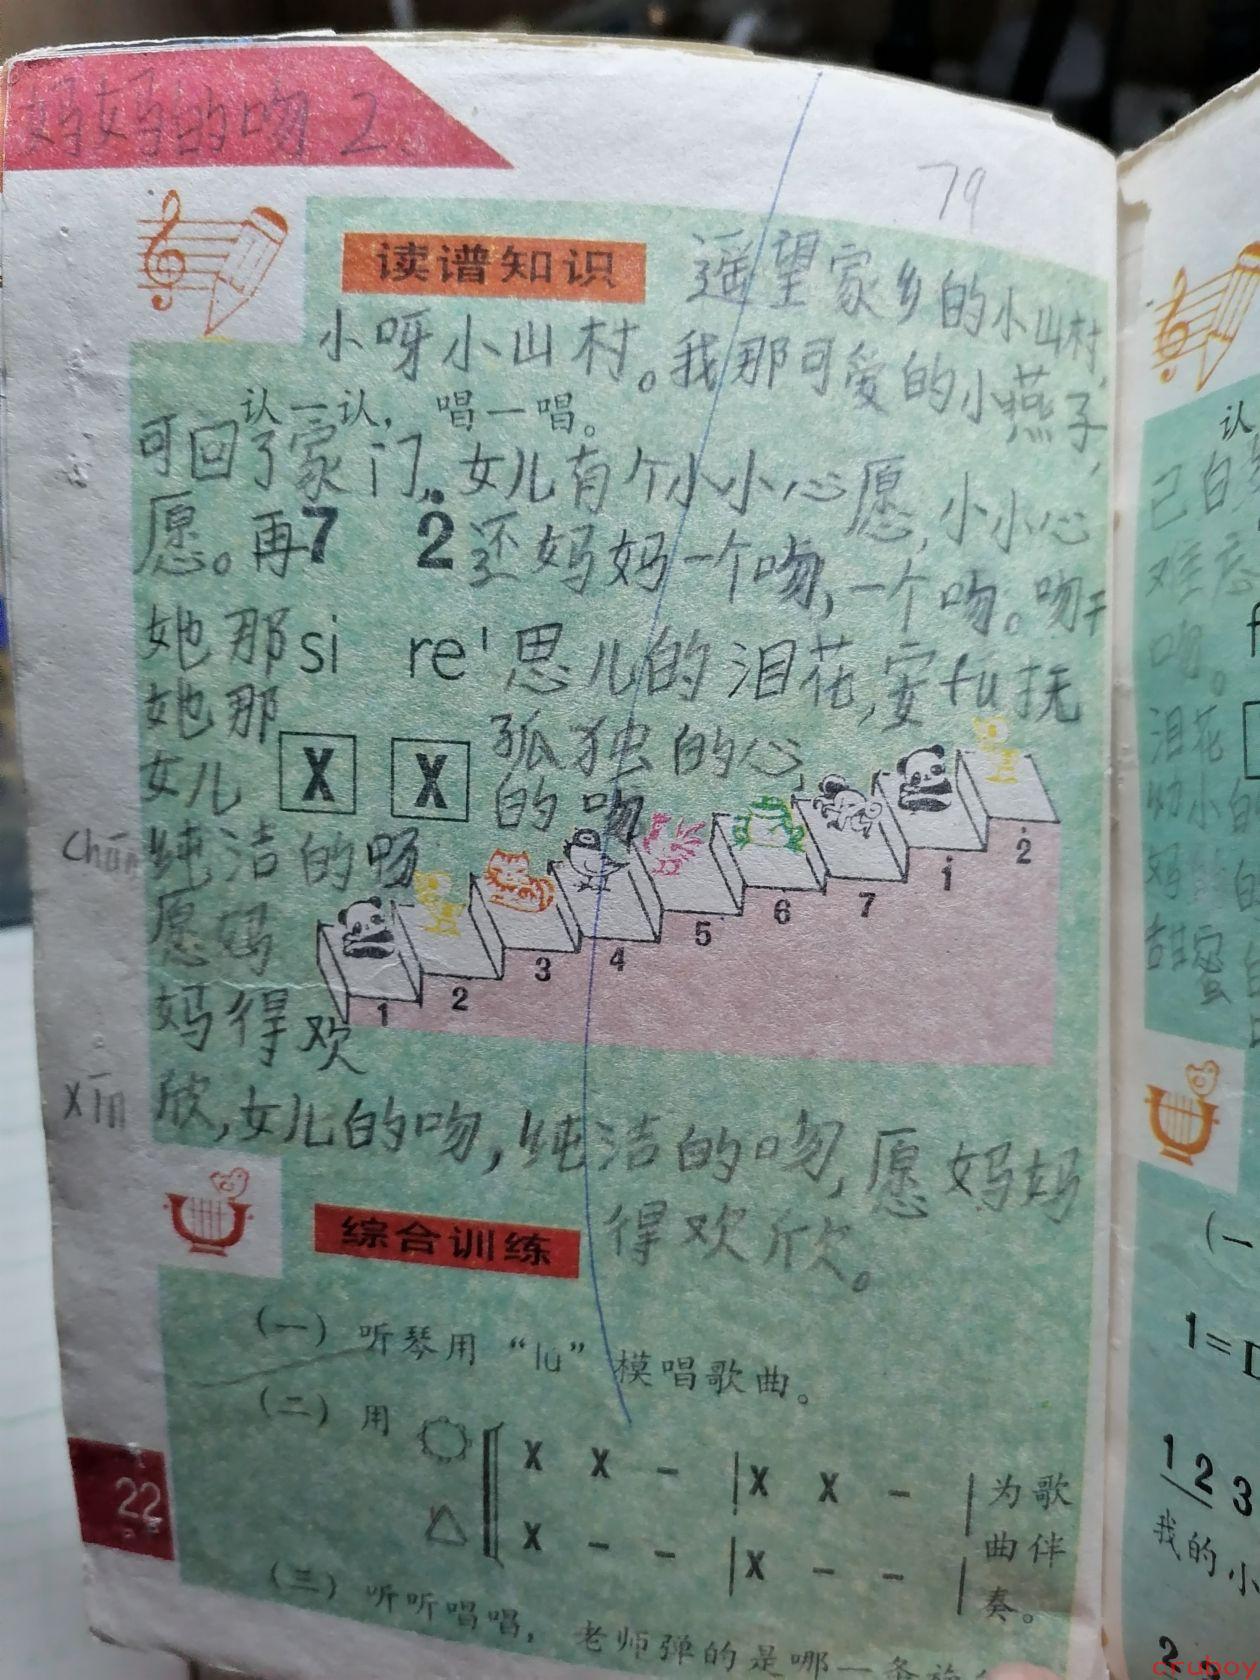 妈妈的吻2、
79
读谱知识
遥望家乡的小山村,
小呀小山村。我那可爱的小燕子,
认一认,唱一唱。
可回了家门。女儿有个小小心愿,小小心
愿。再 7 2 还妈妈一个吻,一个吻。吻干
她那 si re' 思儿的泪花,安fu抚
她那 孤独的心,
女儿 X X 的吻
chún 纯洁的吻
愿妈
妈得欢
xīn 欣,女儿的吻,纯洁的吻,愿妈妈
得欢欣。
1 2 3 4 5 6 7 i 2
综合训练
(一) 听琴用“lu”模唱歌曲。
(二) 用
X X – | X X – | 为歌
X – – | X – – | 曲伴
奏。
(三) 听听唱唱,老师弹的是哪一条旋
22
认
己
难忘
吻。
泪花
幼小
妈
甜蜜
(一
1=
1 2 3
我的小
2
cruboy